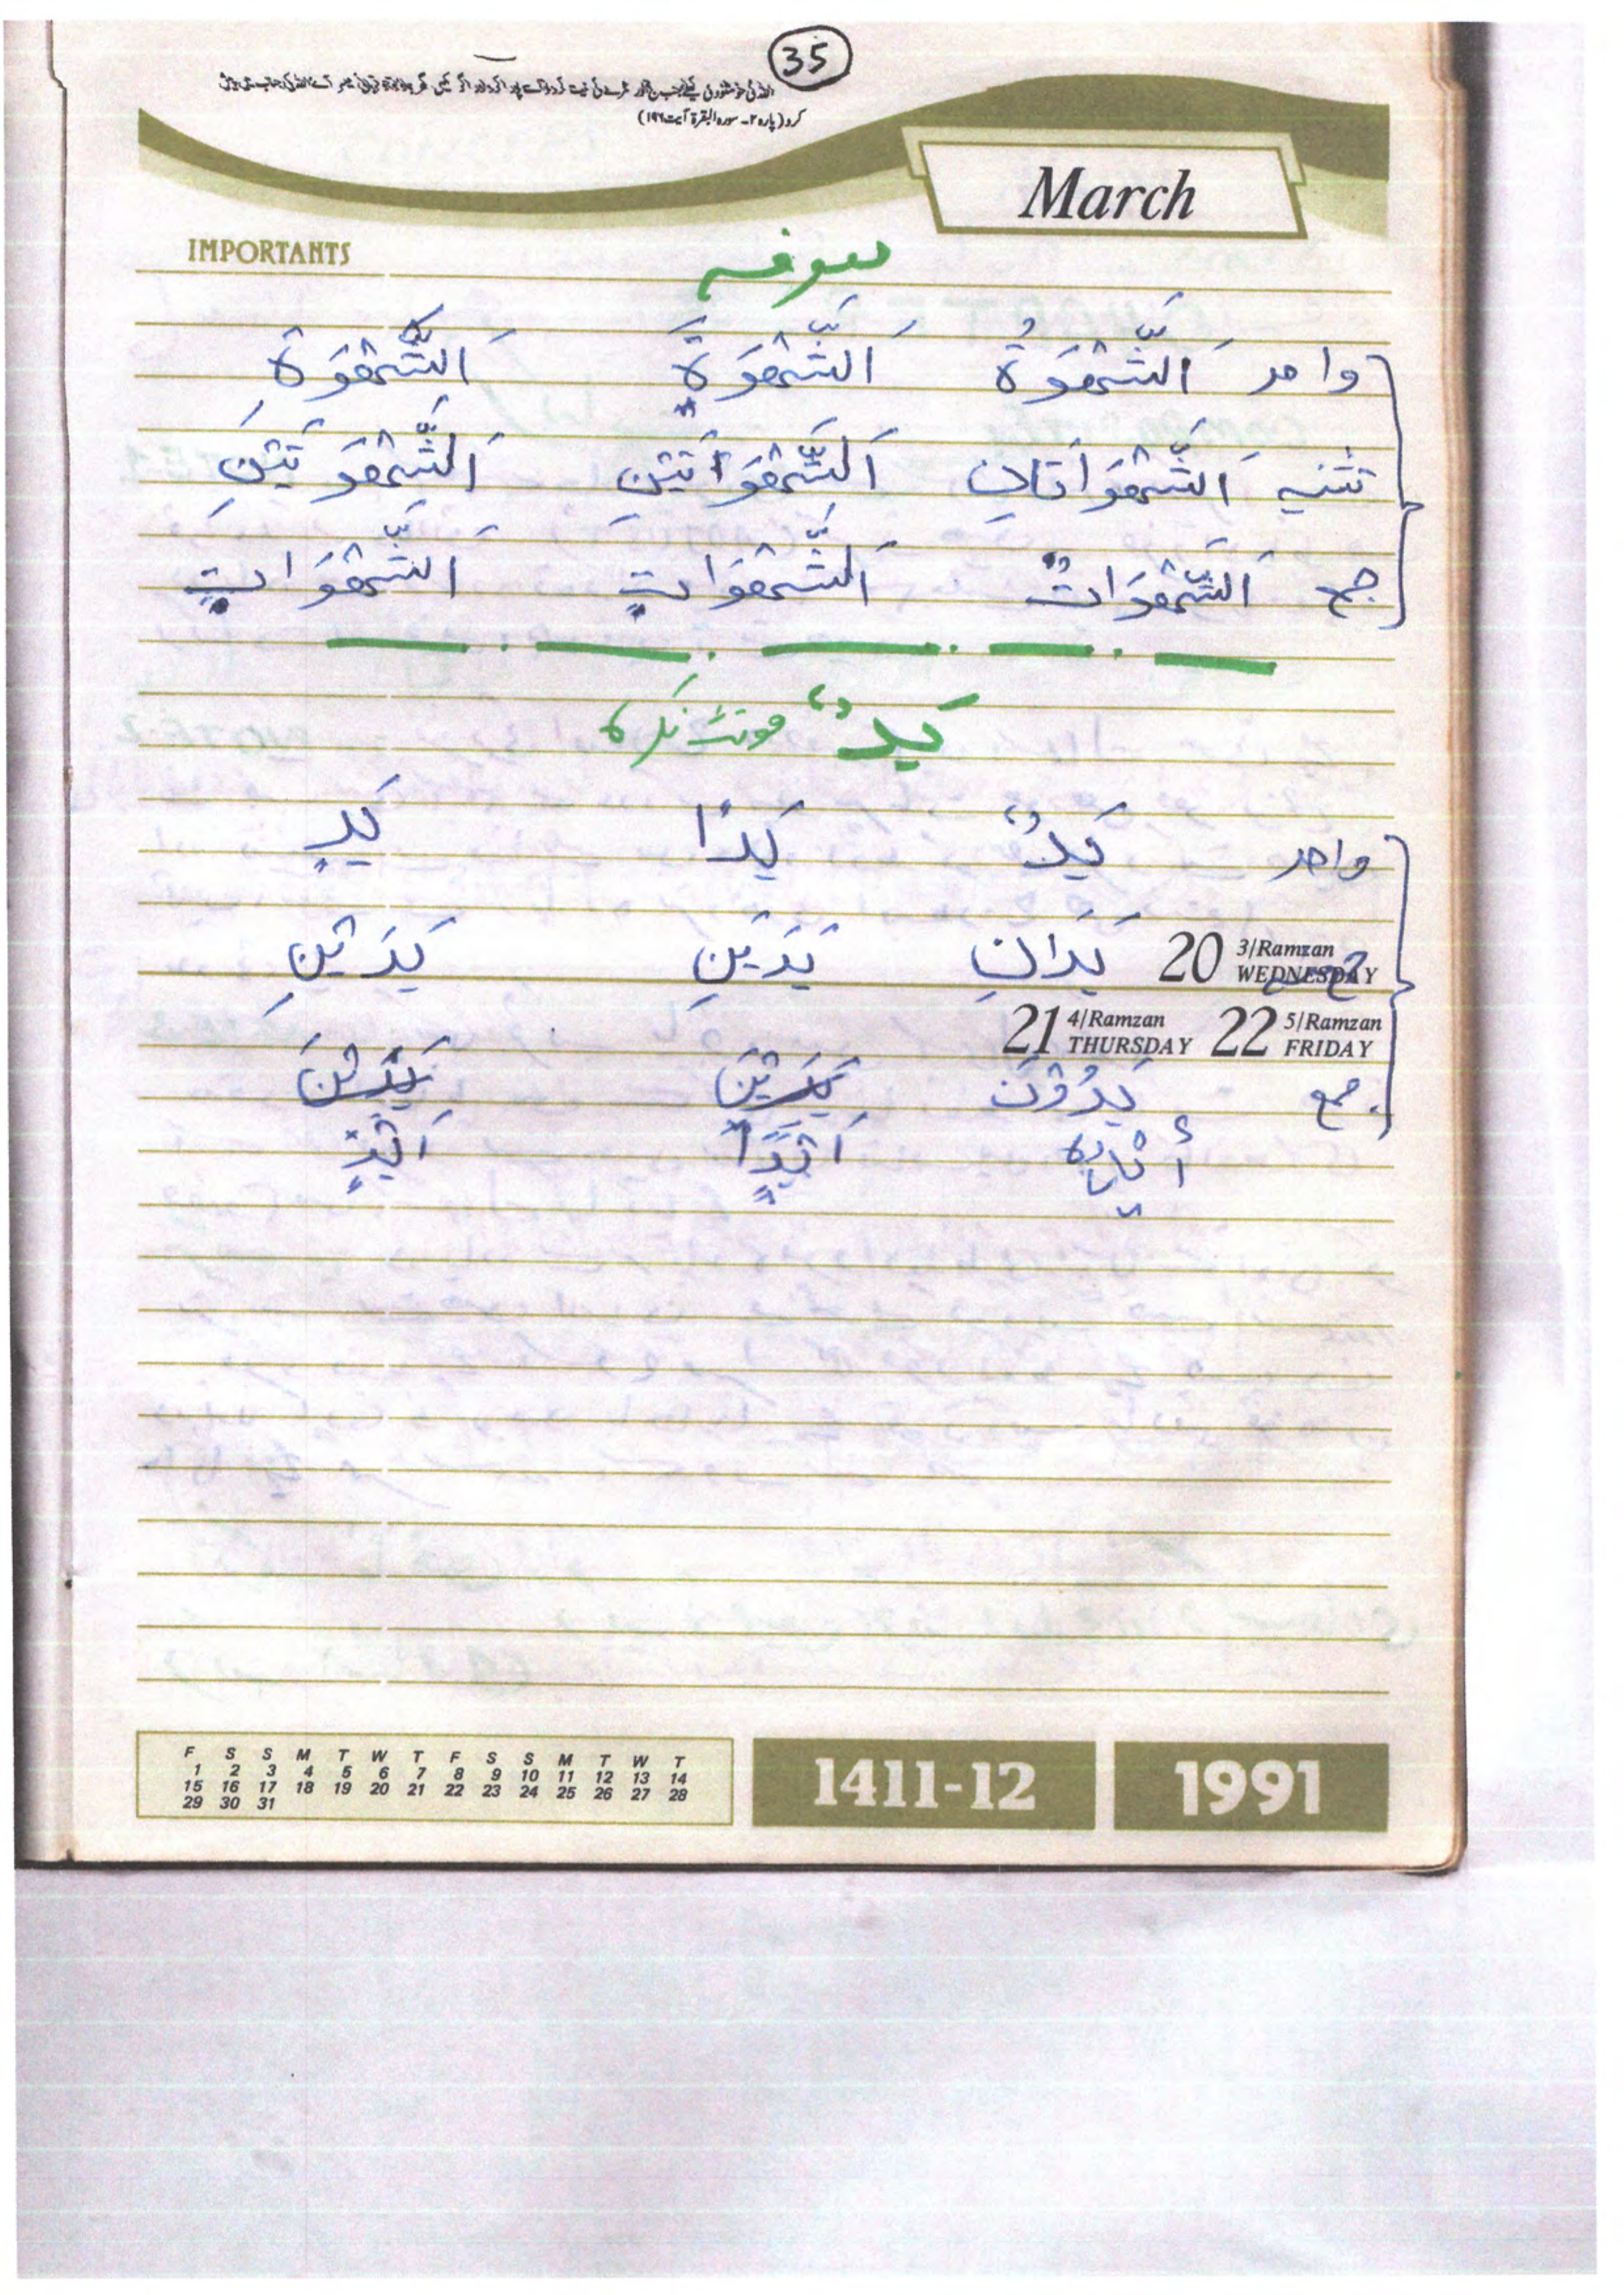 35
کرو (پارہ ۲۔ سورہ البقرۃ آیت ۱۹۶)
March
IMPORTANTS
معرفہ
واحد اَلشَّهْوَةُ اَلشَّهْوَةَ اَلشَّهْوَةِ
تثنیہ اَلشَّهْوَاتَانِ اَلشَّهْوَاتَيْنِ اَلشَّهْوَتَيْنِ
جمع اَلشَّهْوَاتُ اَلشَّهْوَاتٍ اَلشَّهْوَاتٍ
يَدٌ مونث نکرہ
واحد يَدٌ يَدًا يَدٍ
يَدَانِ يَدَيْنِ يَدَيْنِ
20 3/Ramzan WEDNESDAY
21 4/Ramzan THURSDAY 22 5/Ramzan FRIDAY
جمع يَدُوْنَ يَدَيْنَ يَدَيْنَ
F S S M T W T F S S M T W T
1 2 3 4 5 6 7 8 9 10 11 12 13 14
15 16 17 18 19 20 21 22 23 24 25 26 27 28
29 30 31
1411-12
1991